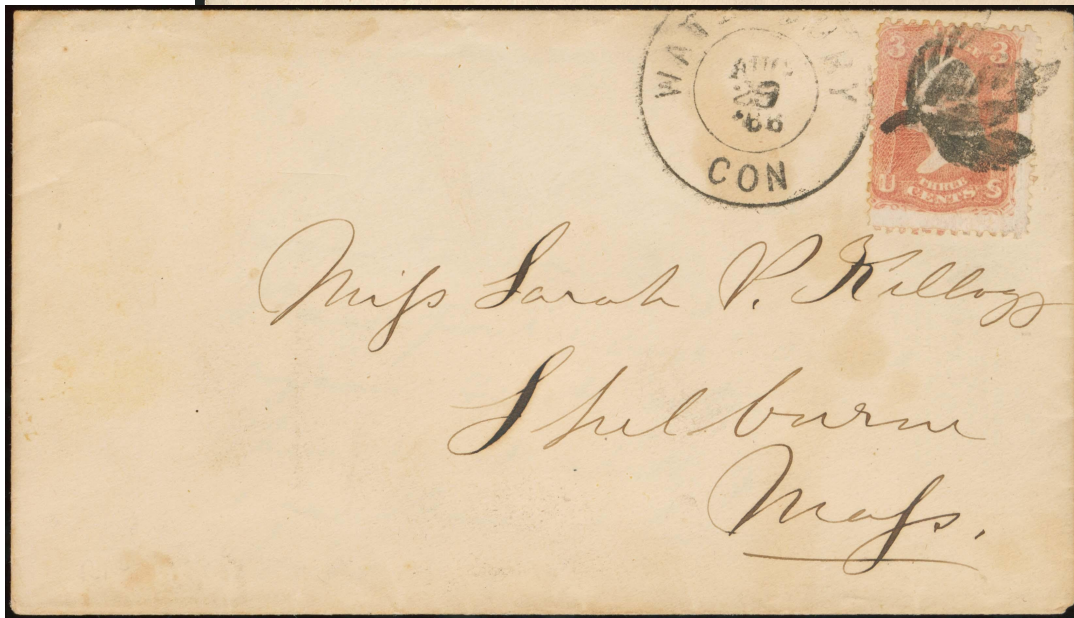 WAT RY
CON
AUG
'66
3 3
U THREE S
CENTS
Miss Sarah P. Kellogg
Shelburne
Mass.